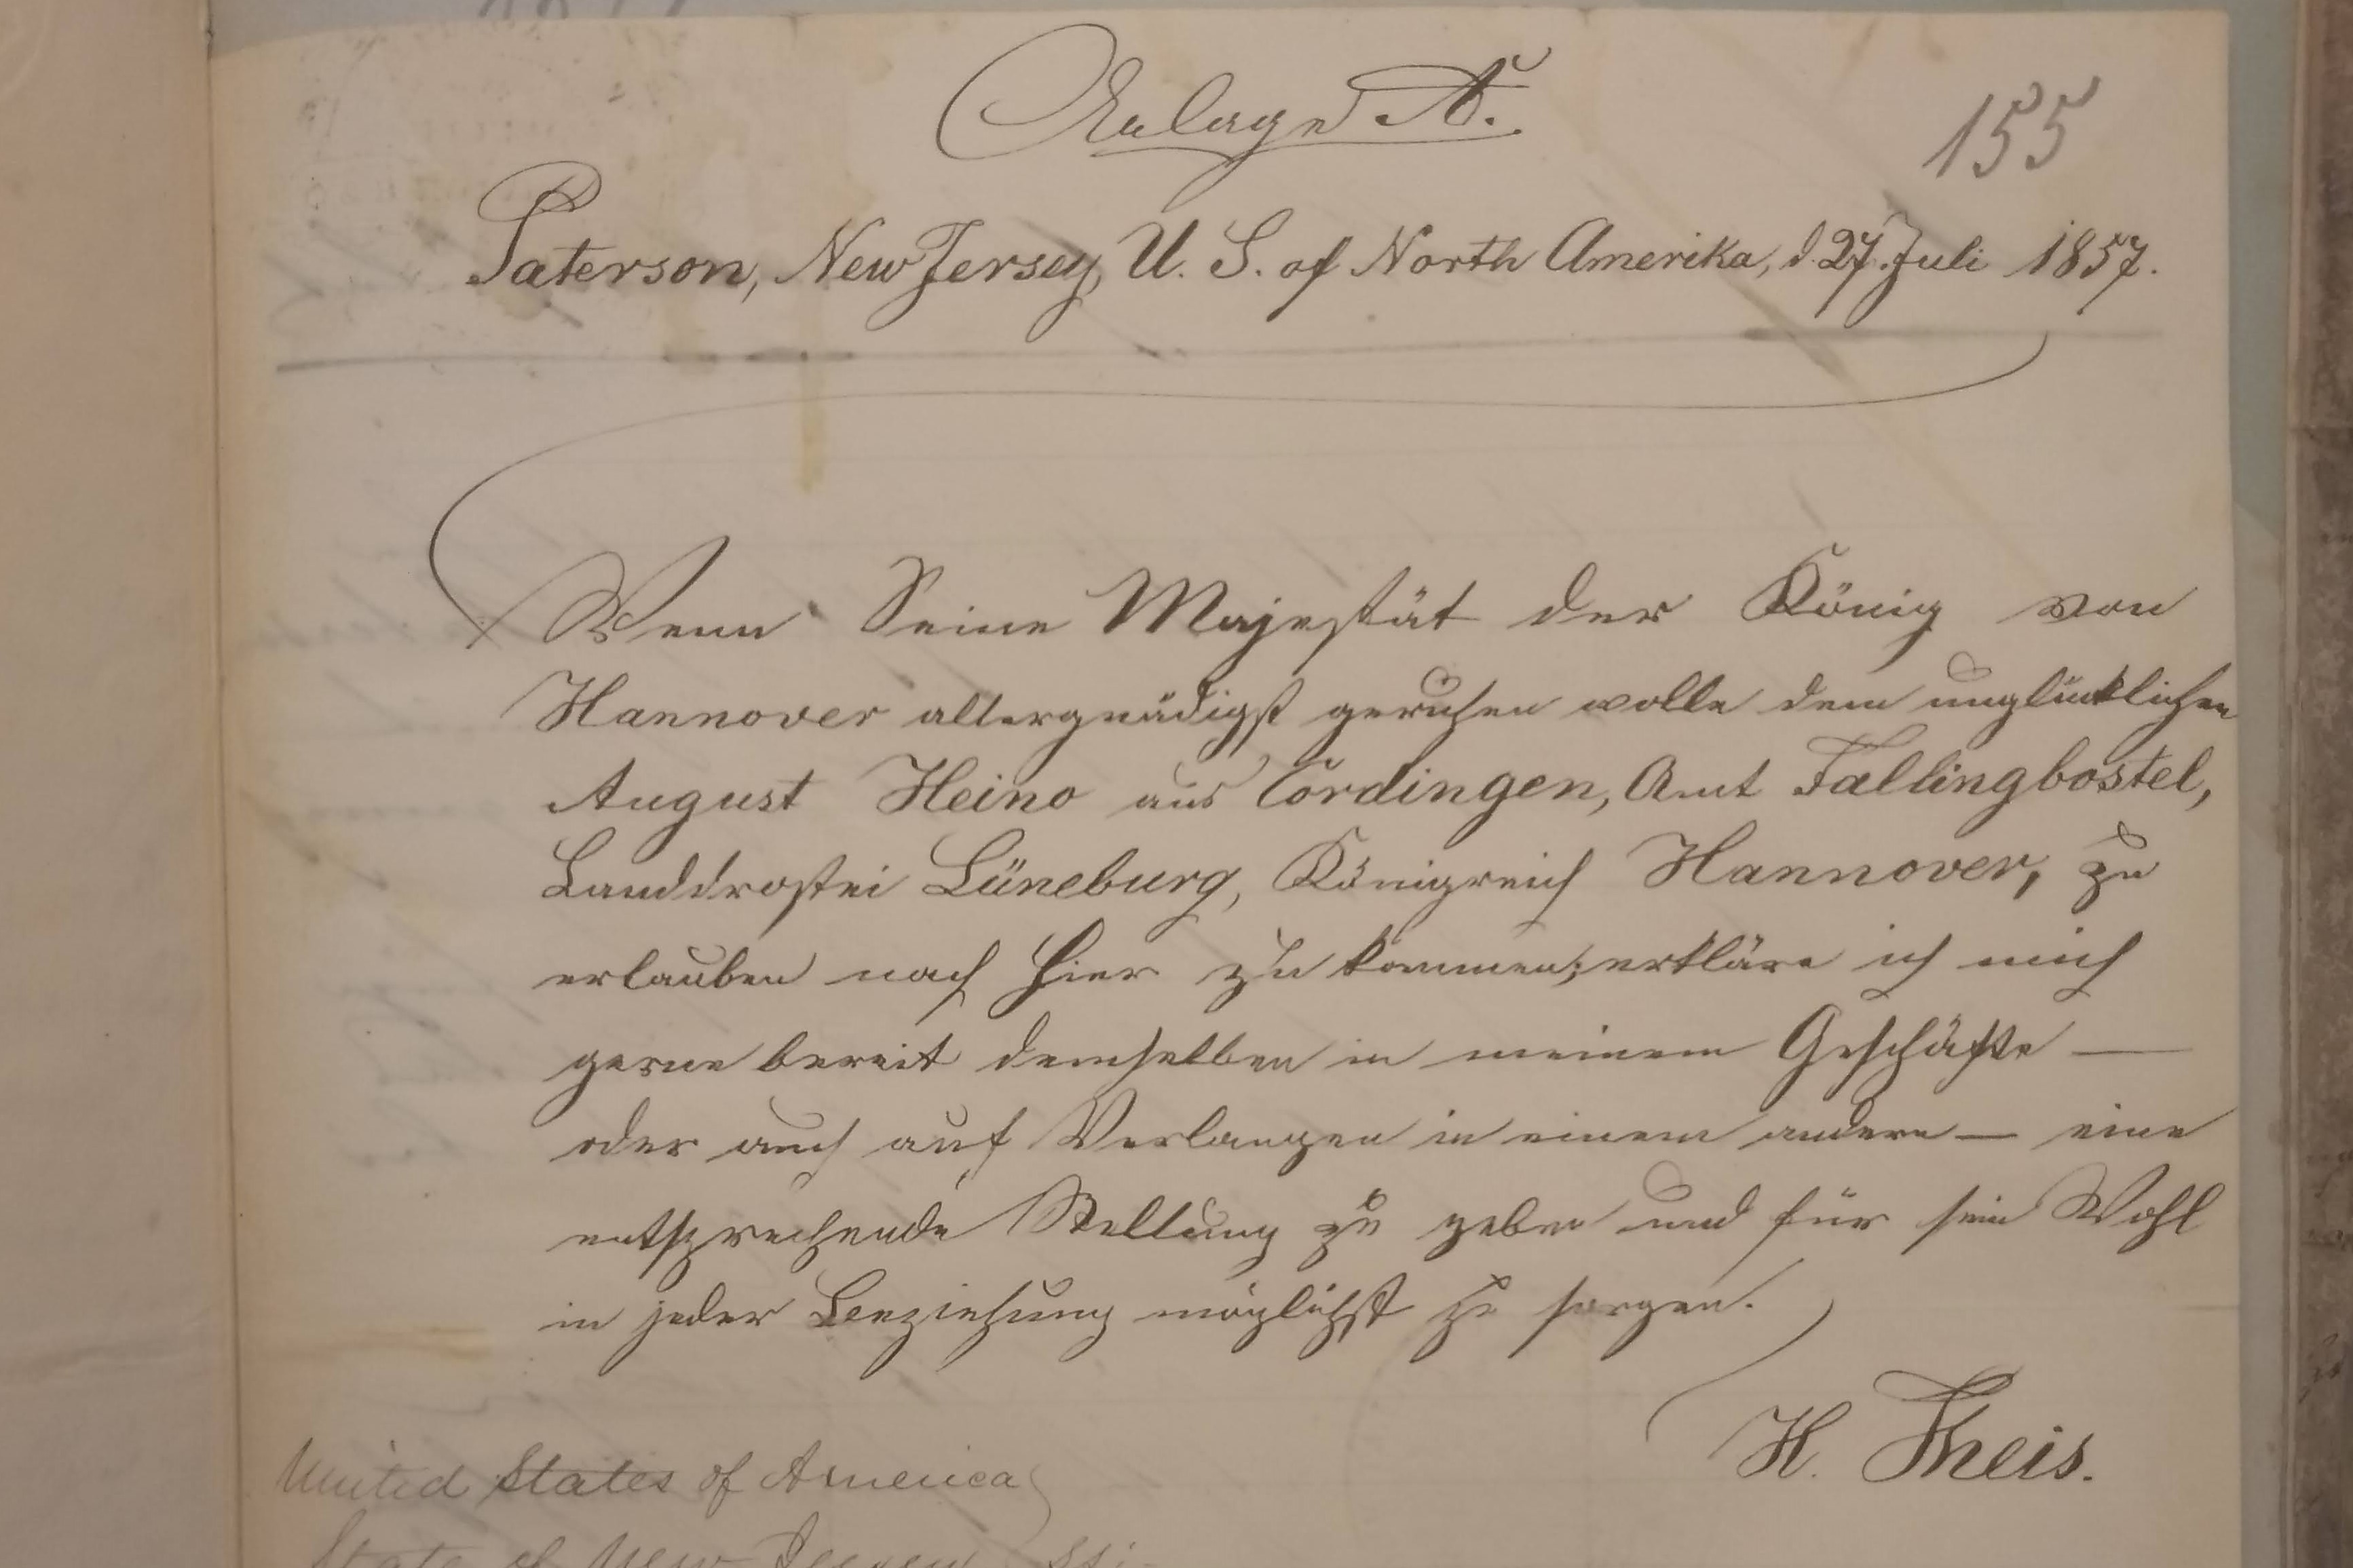 Anlage A.
155
Paterson, New Jersey, U. S. of North Amerika, d. 27. Juli 1857.
Wenn Seine Majestät der König von
Hannover allergnädigst geruhen wolle dem unglücklichen
August Heino aus Cordingen, Amt Fallingbostel,
Landdrostei Lüneburg, Königreich Hannover, zu
erlauben nach hier zu kommen; erkläre ich mich
gerne bereit demselben in meinem Geschäfte —
oder auch auf Verlangen in einem andern — eine
entsprechende Stellung zu geben und für sein Wohl
in jeder Beziehung möglichst zu sorgen.
H. Theis.
United States of America
State of New Jersey ss: